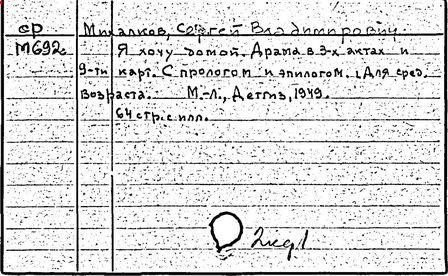 ср Михалков, Сергей Владимирович.
М692с Я хочу домой. Драма в 3-х актах и
9-ти карт. С прологом и эпилогом. Для сред.
возраста. М.-Л., Детгиз, 1949.
64 стр. с илл.